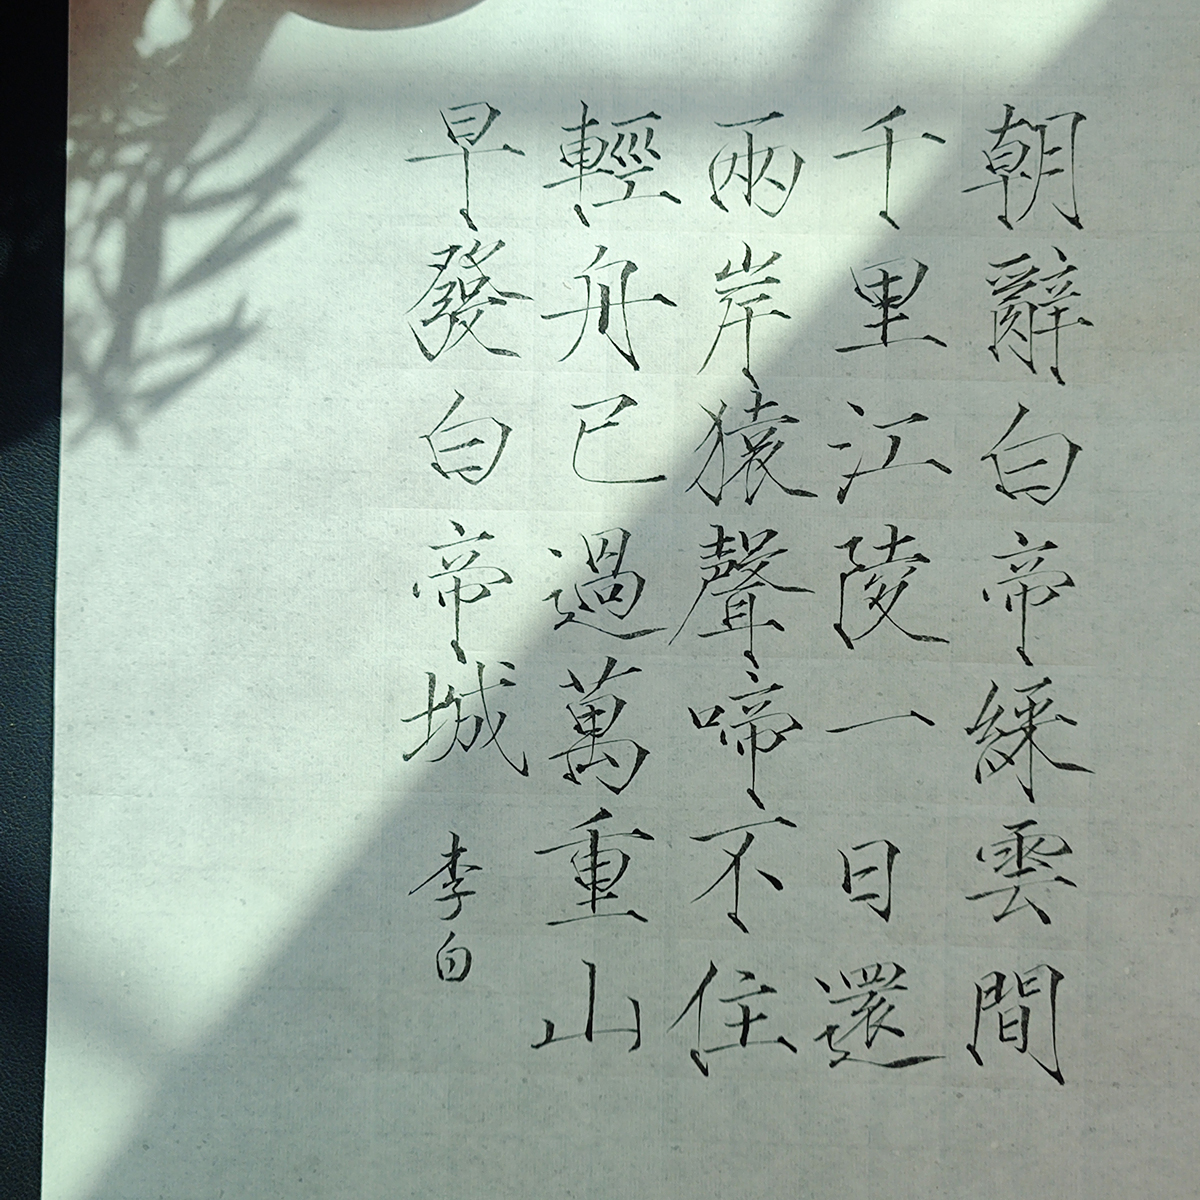 朝辭白帝綵雲間
千里江陵一日還
兩岸猿聲啼不住
輕舟已過萬重山
早發白帝城 李白